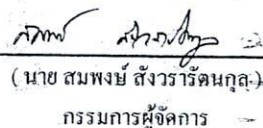 ( นาย สมพงษ์ สังวรารัตนกุล )
กรรมการผู้จัดการ